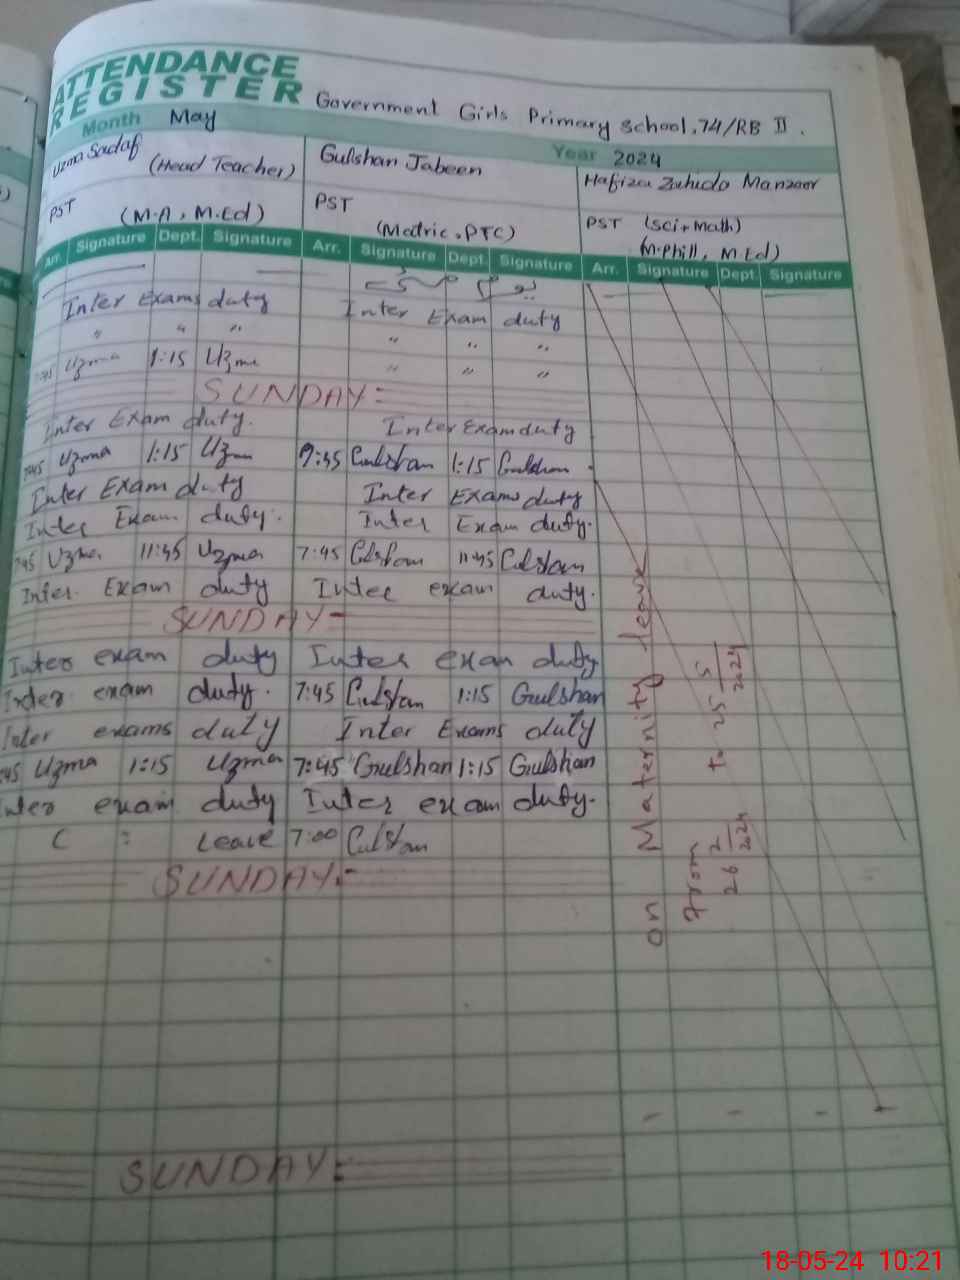 ATTENDANCE
REGISTER Government Girls Primary School, 74/RB II.
Month May Year 2024
Uzma Sadaf (Head Teacher) Gulshan Jabeen Hafiza Zahida Manzoor
PST (M.A, M.Ed) PST (Matric, PTC) PST (Sci+Math) (M.Phill, M.Ed)
Arr. Signature Dept. Signature Arr. Signature Dept. Signature Arr. Signature Dept. Signature
Inter Exams duty Inter Exam duty
" " " " " "
Uzma 1:15 Uzma " " "
SUNDAY
Inter Exam duty. Inter Exam duty
7:45 Uzma 1:15 Uzma 7:45 Gulshan 1:15 Gulshan
Inter Exam duty Inter Exams duty
Inter Exam duty. Inter Exam duty.
7:45 Uzma 11:45 Uzma 7:45 Gulshan 11:45 Gulshan
Inter. Exam duty Inter exam duty.
SUNDAY
Inter exam duty Inter exam duty
Inter exam duty. 7:45 Gulshan 1:15 Gulshan
Inter exams duty Inter Exams duty
7:45 Uzma 1:15 Uzma 7:45 Gulshan 1:15 Gulshan
Inter exam duty Inter exam duty.
C : Leave 7:00 Gulshan
SUNDAY
SUNDAY
on Maternity leave
From 26 2/2024 to 25 5/2024
18-05-24 10:21